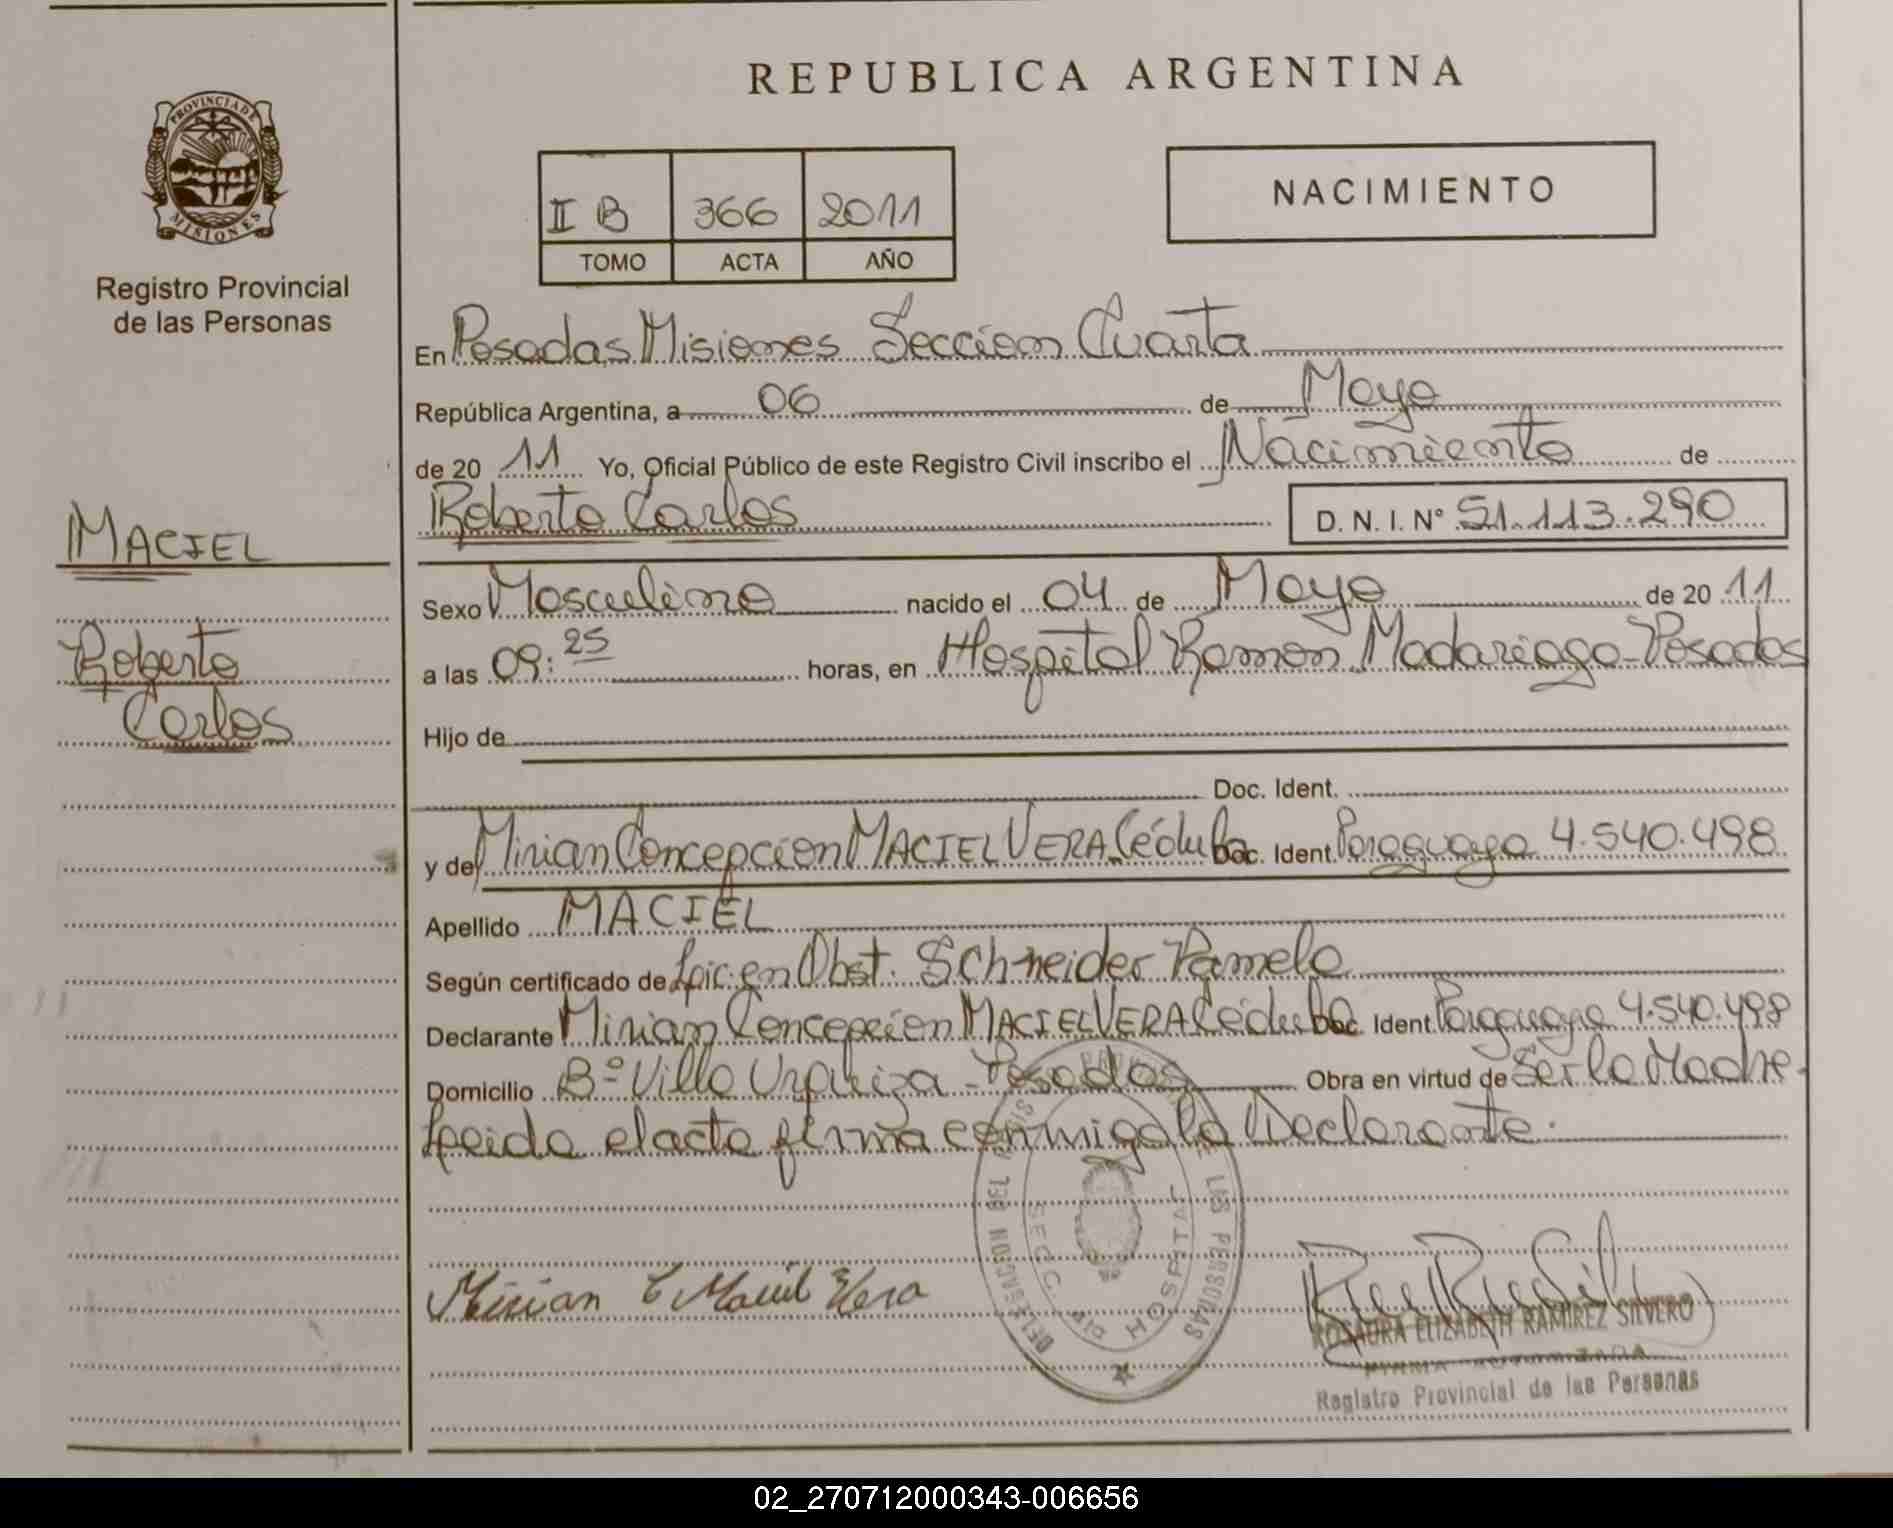 PROVINCIA DE
MISIONES
Registro Provincial
de las Personas
MACIEL
Roberto
Carlos
REPUBLICA ARGENTINA
II B 366 2011
TOMO ACTA AÑO
NACIMIENTO
En Posadas Misiones Seccion Cuarta
República Argentina, a 06 de Mayo
de 20 11 Yo, Oficial Público de este Registro Civil inscribo el Nacimiento de
Roberto Carlos D. N. I. Nº 51.113.290
Sexo Masculino nacido el 04 de Mayo de 20 11
a las 09:25 horas, en Hospital Ramon Madariaga - Posadas
Hijo de
Doc. Ident.
y de Mirian Concepcion MACIEL VERA Cédula Doc. Ident. Paraguaya 4.540.498
Apellido MACIEL
Según certificado de Lic. en Obst. Schneider Pamela
Declarante Mirian Concepcion MACIEL VERA Cédula Doc. Ident. Paraguaya 4.540.498
Domicilio Bº Villa Urquiza - Posadas Obra en virtud de Ser la Madre.
Leida el acta firma conmigo la Declarante.
Mirian C Maciel Vera
LAS PERSONAS
SECC. HOSPITAL
ROSAURA ELIZABETH RAMIREZ SILVERO
FIRMA AUTORIZADA
Registro Provincial de las Personas
02_270712000343-006656